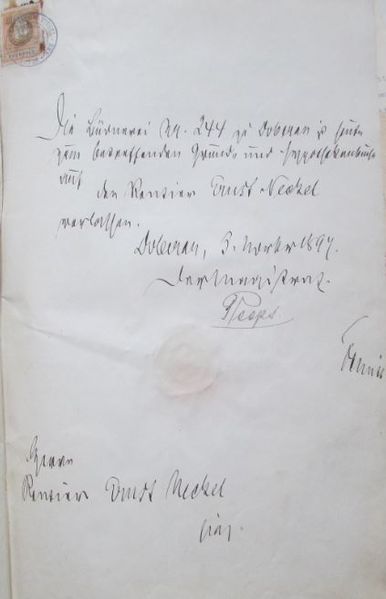 Die Büdnerei No. 244 zu Doberan ist heute
zum betreffenden Grund- und Hypothekenbuche
auf den Rentier Ernst Neckel
verlassen.
Doberan, 3. 1897.
Der Magistrat.
Herrn
Rentier Ernst Neckel
hier.